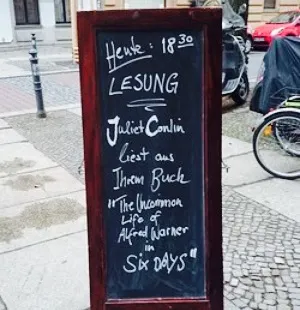 Heute: 18 30
LESUNG
Juliet Conlin
liest aus
Ihrem Buch
"The Uncommon
Life of
Alfred Warner
in
SIX DAYS"